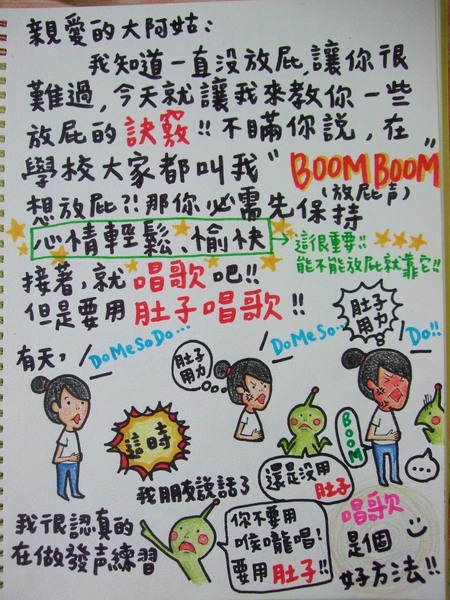 親愛的大阿姑:
我知道一直沒放屁,讓你很
難過,今天就讓我來教你一些
放屁的訣竅!!不瞞你說,在
學校大家都叫我"BOOM BOOM"
(放屁声)
想放屁?!那你必需先保持
心情輕鬆、愉快→這很重要!!
能不能放屁就靠它!!
接著,就唱歌吧!!
但是要用肚子唱歌!!
有天,
DoMeSoDo...
肚子用力
DoMeSo...
肚子用力
Do!!
這時
BOOM
...
我朋友說話了
還是沒用肚子
我很認真的
在做發声練習
你不要用
喉嚨唱!
要用肚子!!
唱歌
是個
好方法!!